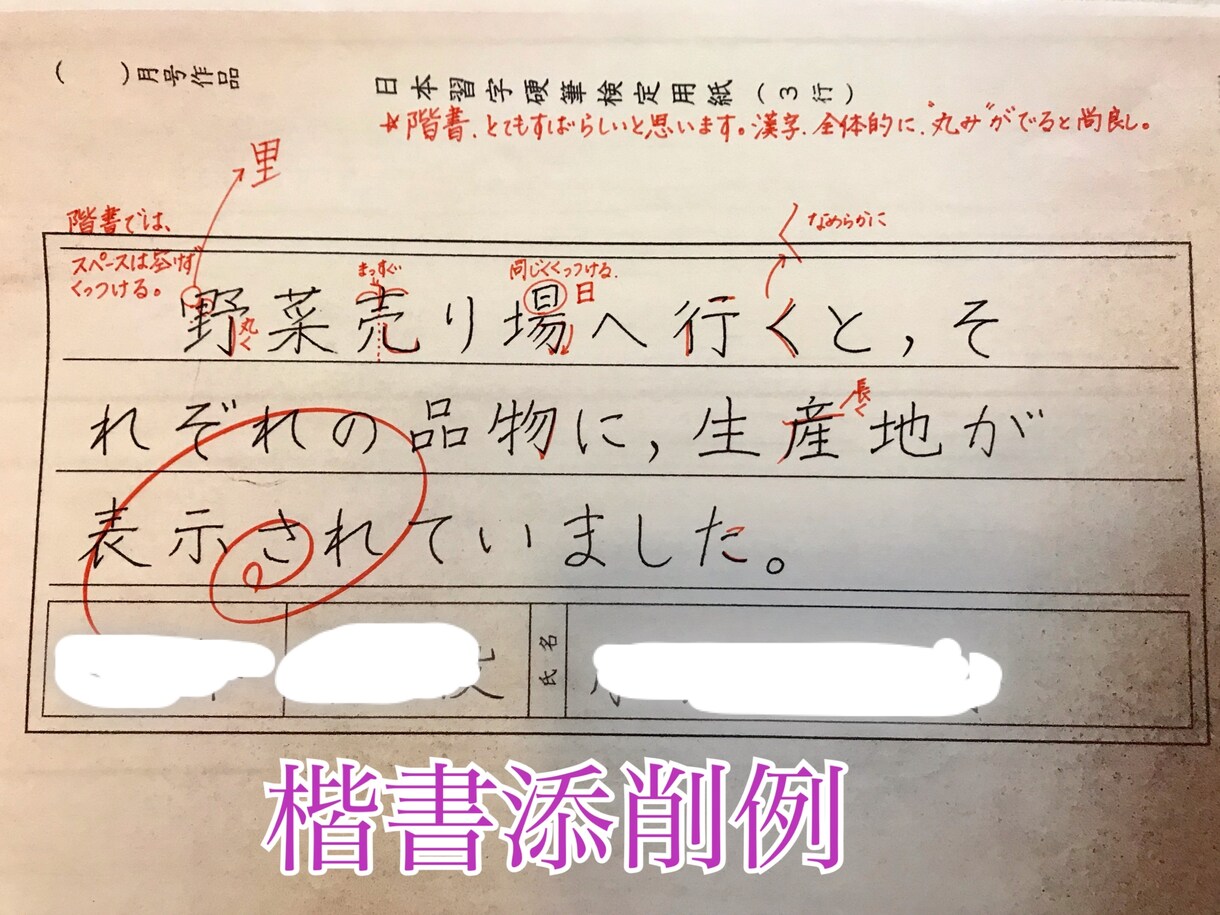 ( )月号作品
日本習字硬筆検定用紙(3行)
*階書、とてもすばらしいと思います。漢字、全体的に、"丸み"がでると尚良し。
里
階書では、
スペースは空けず
くっつける。
まっすぐ
同じくくっつける.
日
なめらかに
野菜売り場へ行くと,そ
丸く
長く
れぞれの品物に,生産地が
表示されていました。
氏名
楷書添削例